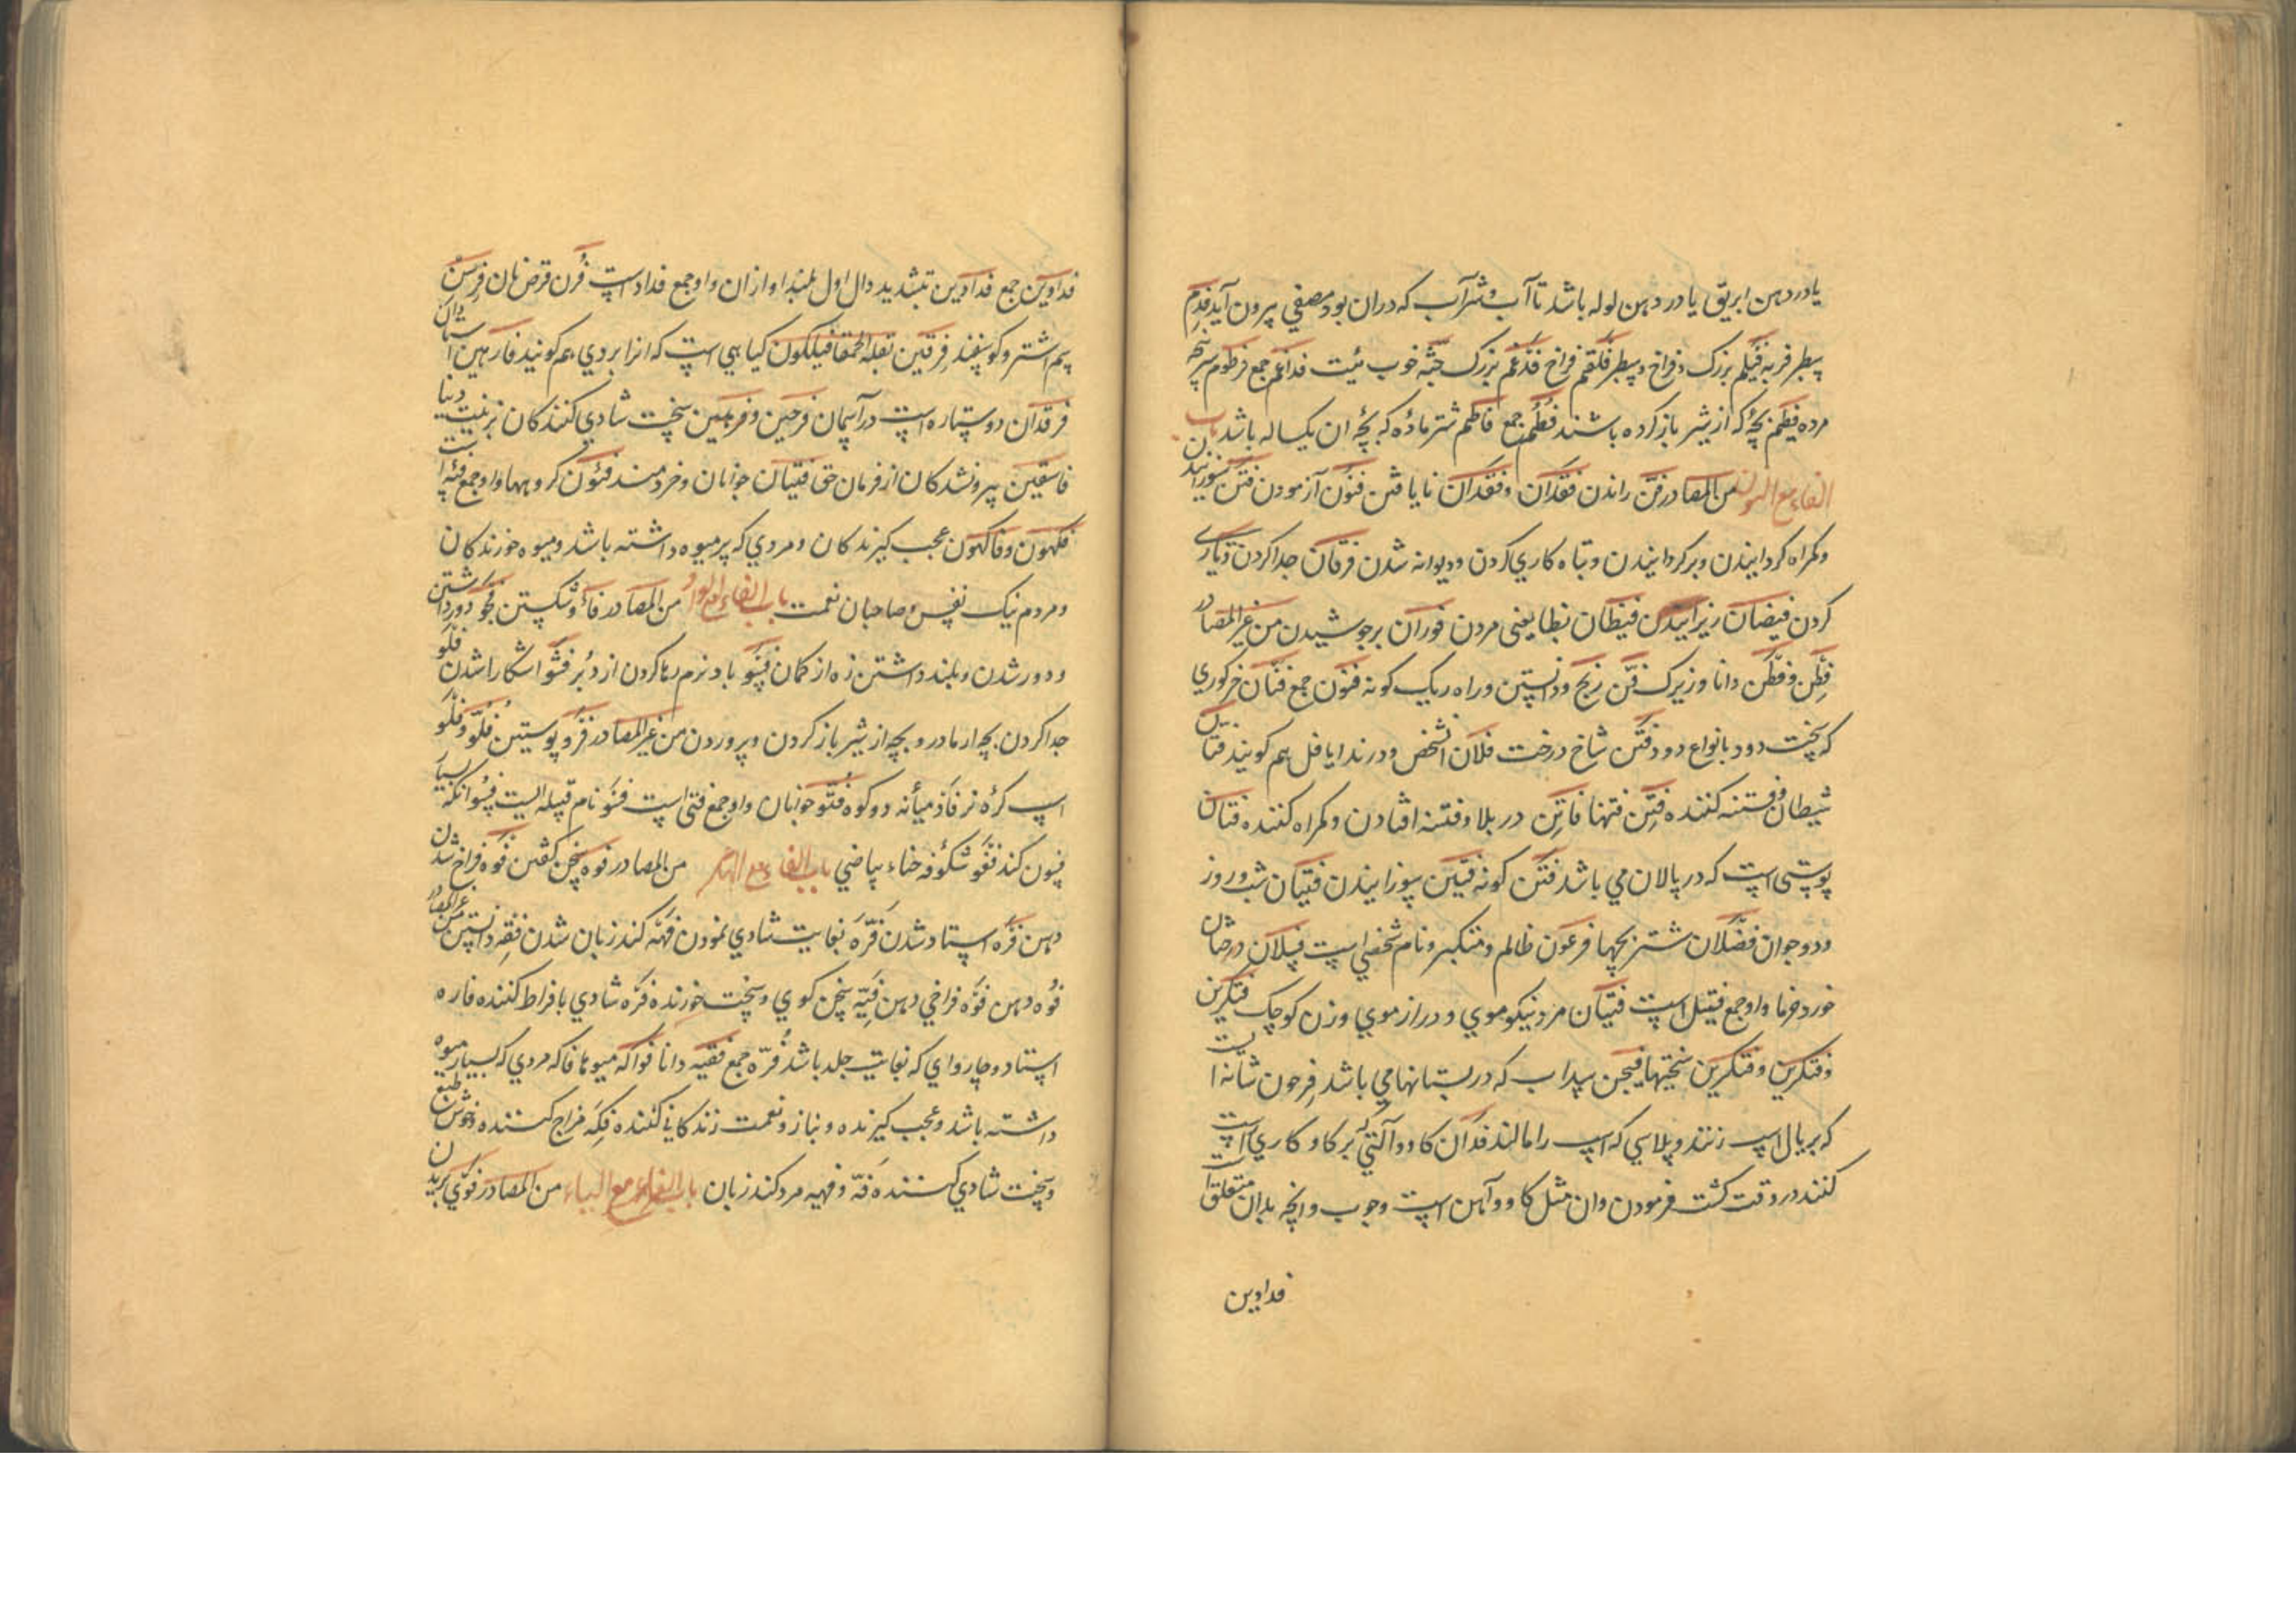 یا در دهن ابریق یا در دهن لوله باشد تا آب و شراب که دران بود مصفی بیرون آید فدم
سطبر فربه فیلم بزرک و فراخ و سطبر فلقم فراخ فدغم بزرک جثه خوب هیئت فداغم جمع فرطوم سر نیجه
مرده فطیم بچهٔ که از شیر باز کرده باشند فطم جمع فاطم شتر مادهٔ که بچهٔ ان یکساله باشد باب
الفاء مع النون من المصادر فن راندن فقدان و فقدان نا یافتن فتون آزمودن فتن سوزانیدن
و کمراه کردانیدن و برکردانیدن و تباه کاری کردن و دیوانه شدن فرقان جدا کردن
کردن فیضان فیظان یعنی مردن فوران برجوشیدن من غیر المصادر
فطن و فطن دانا و زیرک فن رنج و دانستن و راه و یک کونه فنون جمع فتان خر کوری
که بخت دود بانواع دود فنن شاخ درخت فلان شخص و در ندا یا فل هم کویند فتان
شیطان و فتنه کننده فتن فتنها فاتن در بلا و فتنه افتادن و کمراه کننده فتان
پوستی است که در پالان می باشد فتن کونه فتین سوزانیدن فتیان شب و روز
و دو جوان فصلان شتر بچها فرعون ظالم و متکبر و نام شخصی است فسلان درختان
خورد خرما و او جمع فسیل است فینان مرد نیکو موی و دراز موی و زن کوچک فتکرین
و فتکرین و فتکرین سختیها فیجن سداب که در بستانها می باشد فرجون شانه است
که بر یال اسب زنند و پلاسی که اسب را مالند فدان کاو و آلتی که بر کاو کاری است
کنند در وقت کشت فرمودن و ان مثل کاو و آهن است و چوب و انچه بدان متعلق است
فدادین
فدادین جمع فدادین بتشدید دال اول بلند اوازان و او جمع فداد است فرن قرض نان فرسن
سم اشتر و کوسفند فرقین بقلة الحمقا فیلکون کیاهی است که انرا بردی هم کویند فارهین استادان
فرقدان دو ستاره است در آسمان فرحین و فرحین سخت شادی کنندکان بزینت دنیا
فاسقین بیرونشدکان از فرمان حق فتیان جوانان و خردمند فئون کروهها و او جمع فئه است
فکهون و فاکهون عجب کیرندکان و مردی که پر میوه داشته باشد و میوه خورندکان
و مردم نیک نفس و صاحبان نعمت باب الفاء مع الواو من المصادر فأو شکستن فجو دور داشتن
و دور شدن و بلند داشتن زه از کمان فسو باد نرم رها کردن از دبر فشو اشکارا شدن فلو
جدا کردن بچه از مادر و بچه از شیر باز کردن و پروردن من غیر المصادر فرو پوستین فلو و فلو
اسب کرهٔ نر فاو میانه دو کوه فتو جوانان و او جمع فتی است فسو نام قبیله ایست فسو انکه بسیار
فسون کند فغو شکوفه حناء بیاضی باب الفاء مع الهاء من المصادر فوه سخن کفتن فوه فراخ شدن
دهن فره استاد شدن فره بغایت شادی نمودن فهه کند زبان شدن فقه دانستن من غیر المصادر
فوه دهن فوه فراخی دهن فیه سخن کوی و سخت خورنده فره شادی بافراط کننده فاره
استاد و چاروای که بغایت جلد باشد فره جمع فقیه دانا فواکه میوها فاکه مردی که بسیار میوه
داشته باشد و عجب کیرنده و بناز و نعمت زندکانی کننده فکه مزاج کننده و خوش طبع
و سخت شادی کننده فه و فهیه مرد کند زبان باب الفاء مع الیاء من المصادر فری بریدن